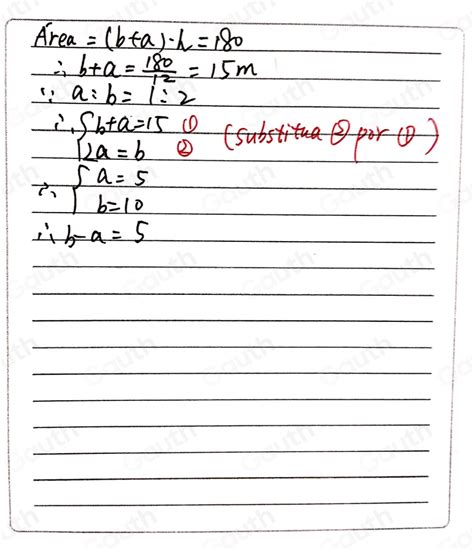 Area = (b+a)·h = 180
∴ b+a = 180/12 = 15m
∵ a:b = 1:2
∴ { b+a=15 ①
2a = b ② (substitua ② por ①)
∴ { a = 5
b=10
∴ b-a = 5